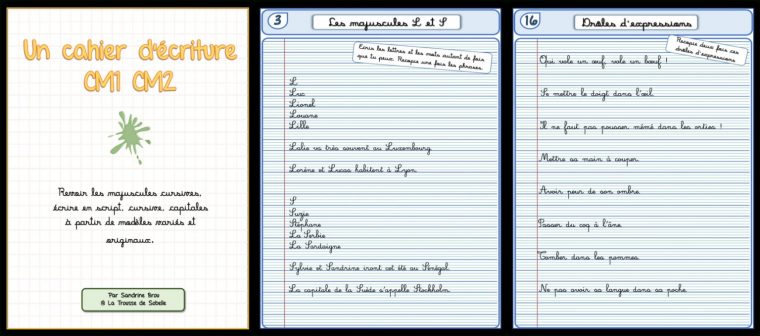 Un cahier d'écriture
CM1 CM2
Revoir les majuscules cursives,
écrire en script, cursive, capitales
à partir de modèles variés et
originaux.
Par Sandrine Brou
@ La Trousse de Sobelle
3
Les majuscules L et S
Ecris les lettres et les mots autant de fois
que tu peux. Recopie une fois les phrases.
L
Luc
Lionel
Louane
Lille
Lalie va très souvent au Luxembourg.
Lorène et Lucas habitent à Lyon.
S
Suzie
Stéphane
La Serbie
La Sardaigne
Sylvie et Sandrine iront cet été au Sénégal.
La capitale de la Suède s'appelle Stockholm.
16
Drôles d'expressions
Recopie deux fois ces
drôles d'expressions
Qui vole un œuf, vole un bœuf !
Se mettre le doigt dans l'œil.
Il ne faut pas pousser mémé dans les orties !
Mettre sa main à couper.
Avoir peur de son ombre.
Passer du coq à l'âne.
Tomber dans les pommes.
Ne pas avoir sa langue dans sa poche.